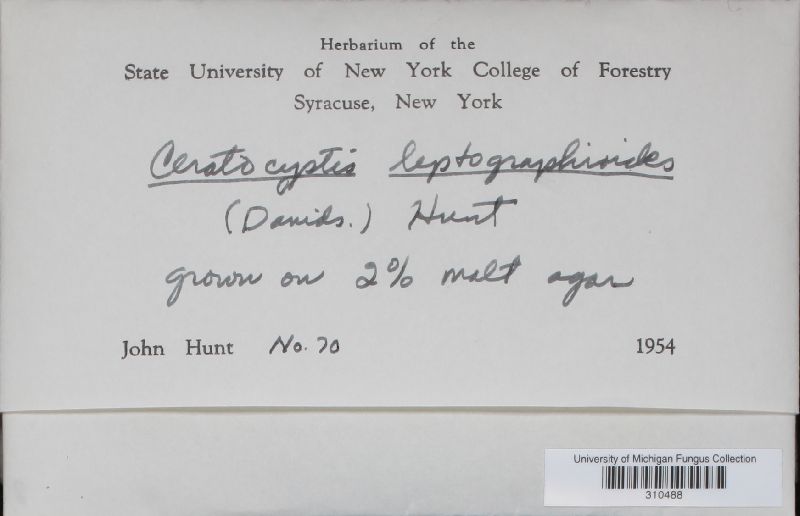 Herbarium of the
State University of New York College of Forestry
Syracuse, New York
Ceratocystis leptographioides
(Davids.) Hunt
grown on 2% malt agar
John Hunt No. 70 1954
University of Michigan Fungus Collection
310488